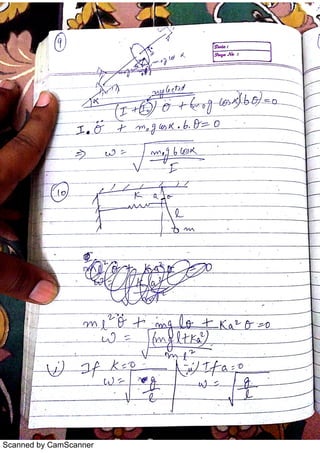 9
Date :
Page No. :
mg cos α
neglected
(I + I₀) θ̈ + (m₀g cosα)(bθ) = 0
I.θ̈ + m₀g cosα . b. θ = 0
⇒ ω = √(m₀gb cosα / I)
10
K a θ
l
m
ml²θ̈ + mglθ + Ka²θ = 0
ω = √((mgl + Ka²) / ml²)
i) If K=0 ii) If a=0
ω = √(g/l) ω = √(g/l)
Scanned by CamScanner